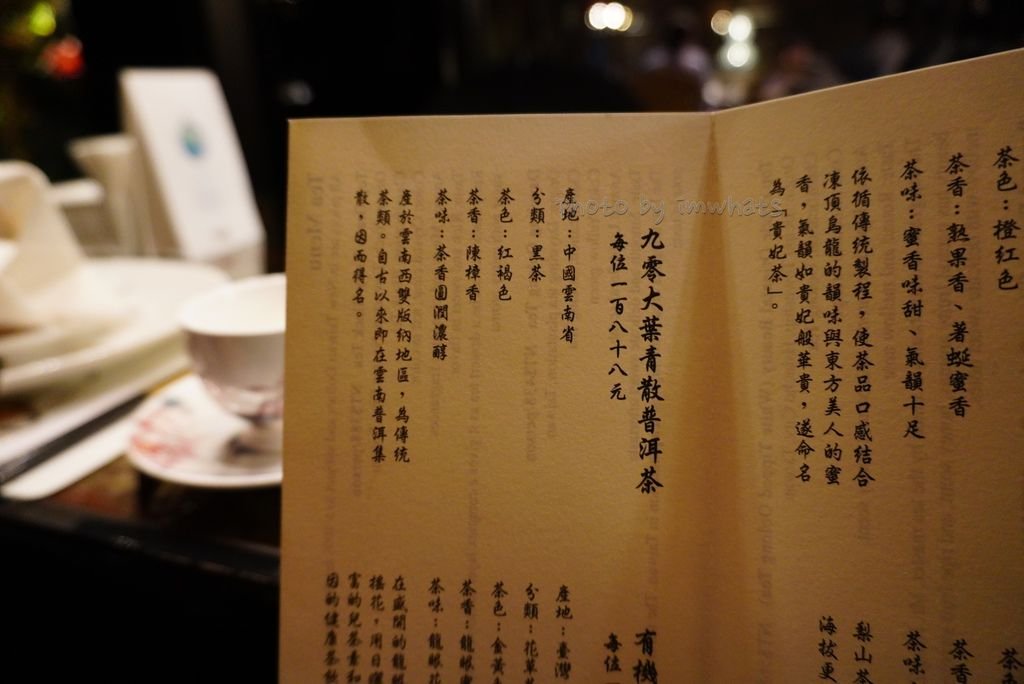 茶色：橙紅色
茶香：熟果香、著蜒蜜香
茶味：蜜香味甜、氣韻十足
依循傳統製程，使茶品口感結合
凍頂烏龍的韻味與東方美人的蜜
香，氣韻如貴妃般華貴，遂命名
為「貴妃茶」。
茶色
茶香
茶味：
梨山茶
海拔更
九零大葉青散普洱茶
每位一百八十八元
產地：中國雲南省
分類：黑茶
茶色：紅褐色
茶香：陳樟香
茶味：茶香圓潤濃醇
產於雲南西雙版納地區，為傳統
茶類。自古以來即在雲南普洱集
散，因而得名。
有機
每位一
產地：臺灣
分類：花草
茶色：金黃
茶香：龍眼
茶味：龍眼花
在盛開的龍
搖花，用日曬
富的兒茶素和
因的健康茶飲
photo by imwhats